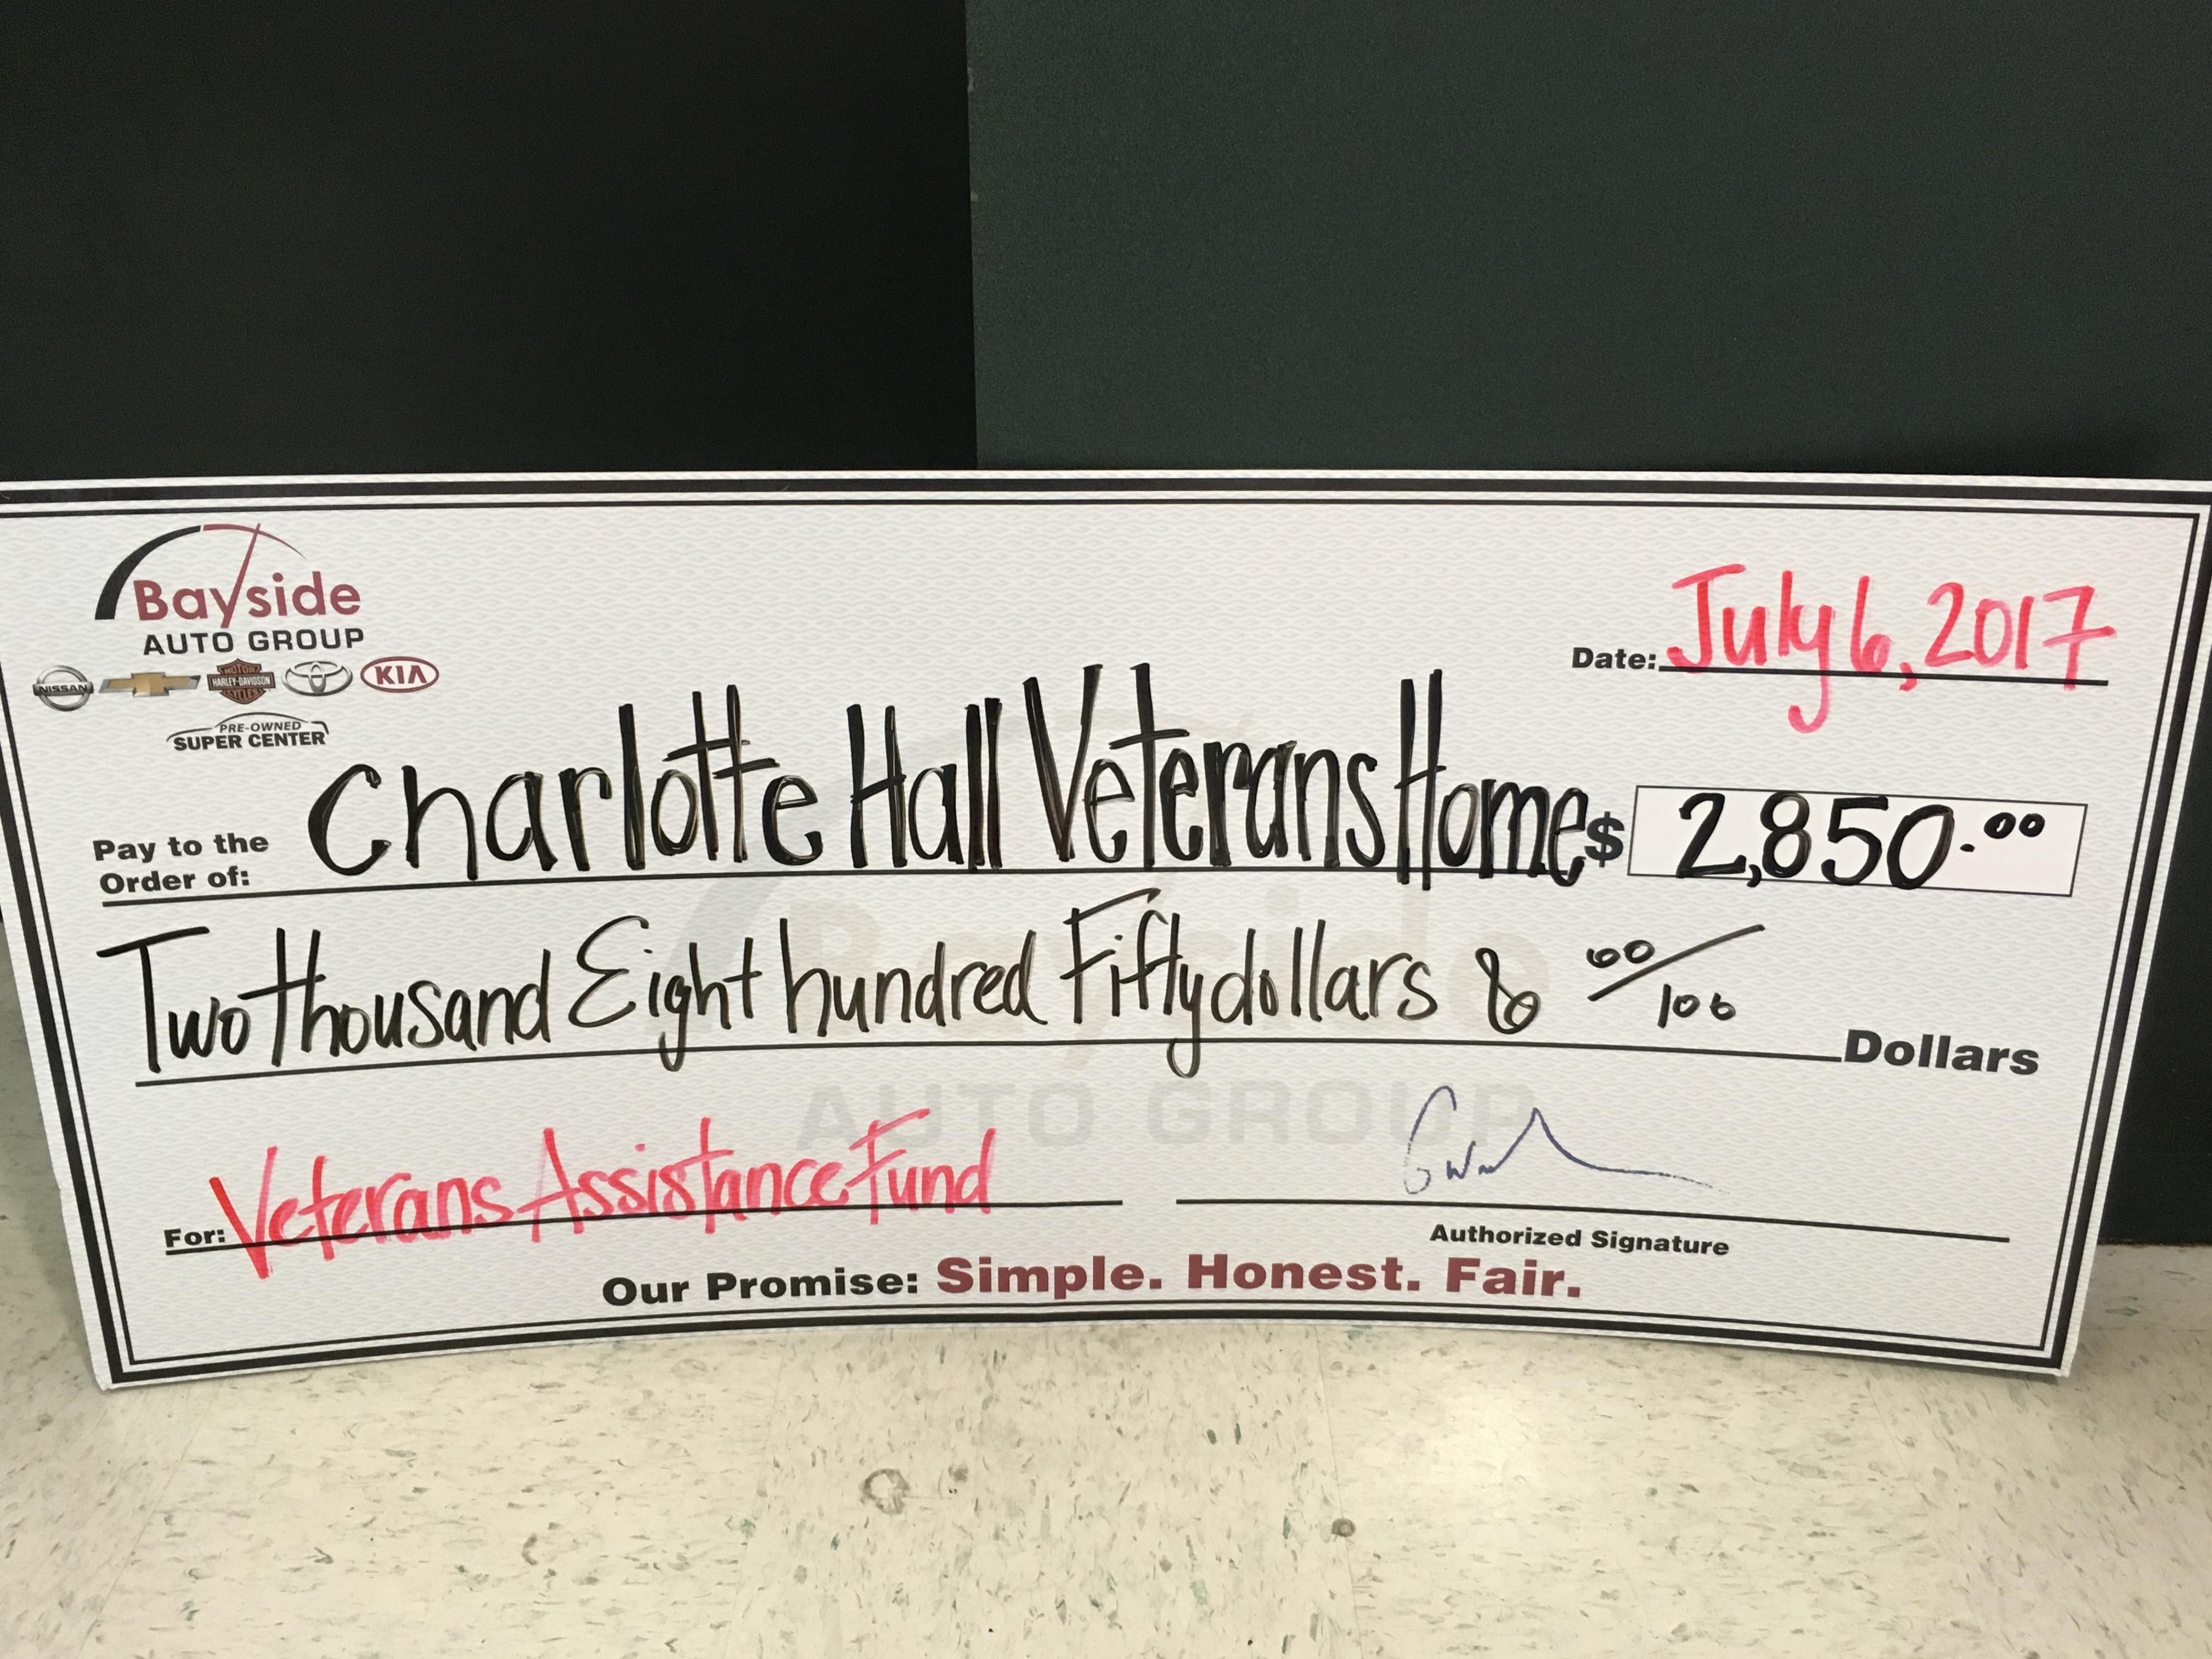 Bayside
AUTO GROUP
NISSAN MOTOR HARLEY-DAVIDSON CYCLES KIA
PRE-OWNED
SUPER CENTER
Date: July 6, 2017
Pay to the
Order of: Charlotte Hall Veterans Home $ 2,850.00
Two thousand Eight hundred Fifty dollars & 00/100 Dollars
AUTO GROUP
For: Veterans Assistance Fund
Authorized Signature
Our Promise: Simple. Honest. Fair.